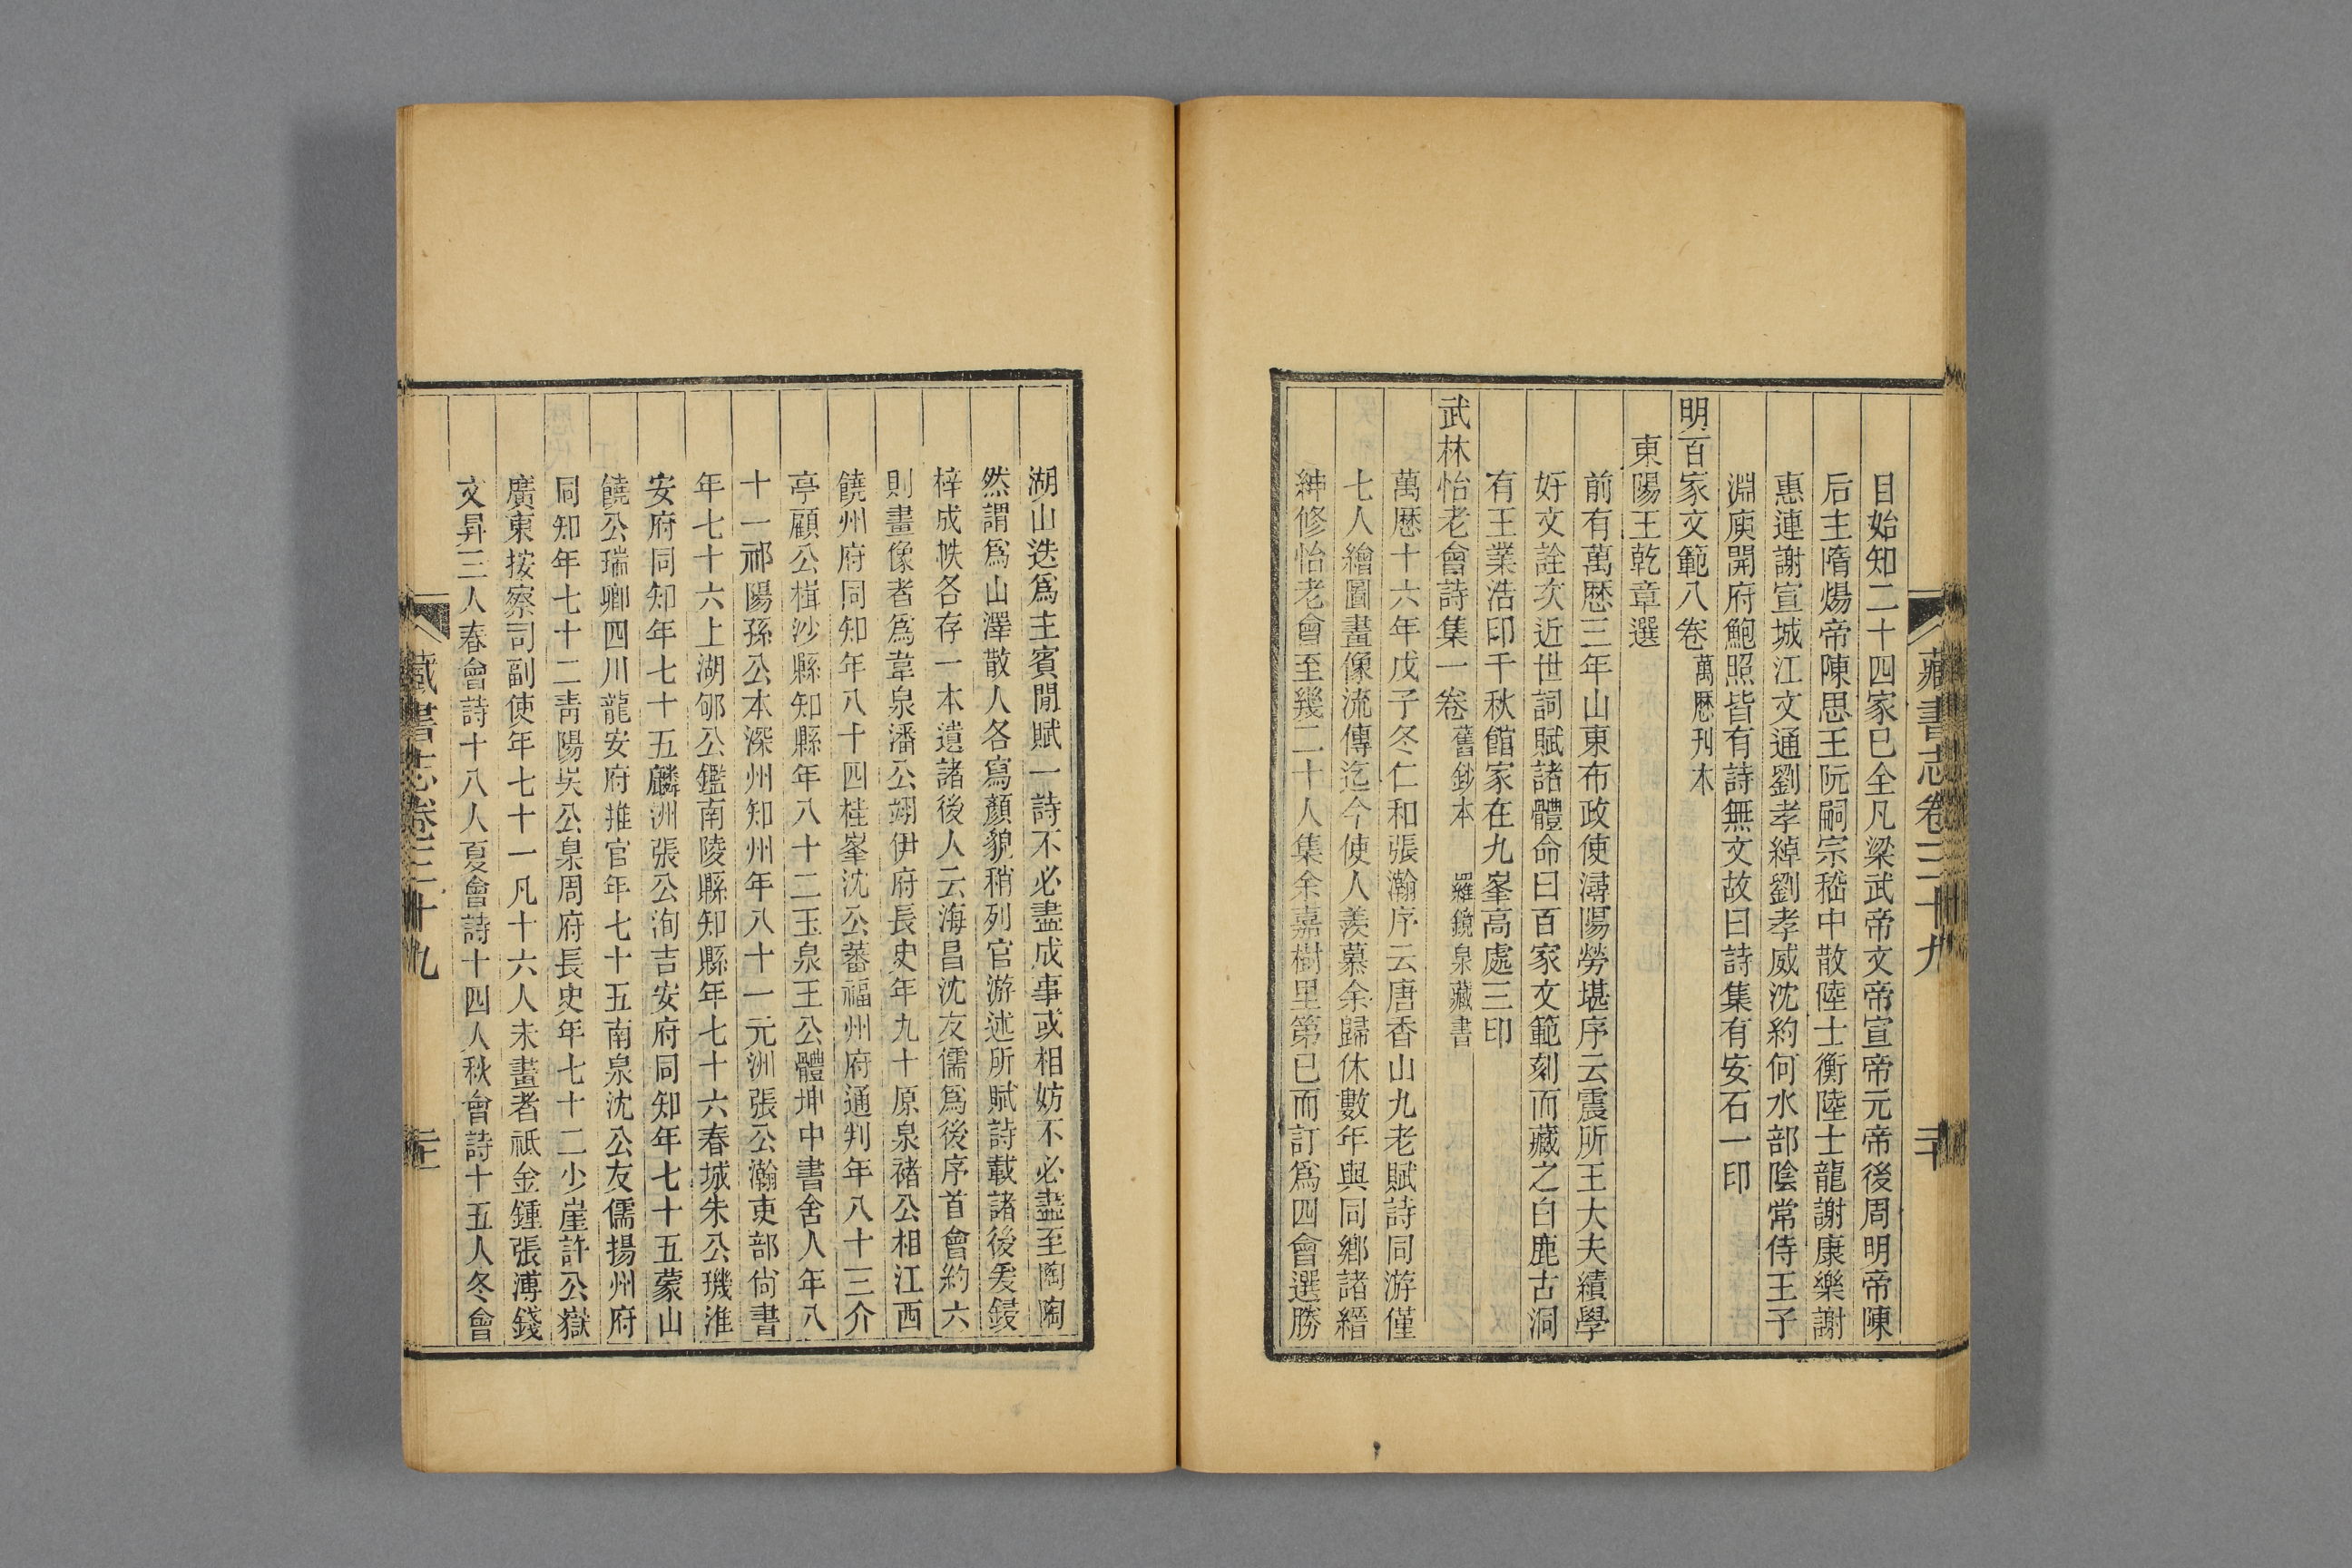 藏書志卷三十九
二十
目始知二十四家已全凡梁武帝文帝宣帝元帝後周明帝陳
后主隋煬帝陳思王阮嗣宗嵇中散陸士衡陸士龍謝康樂謝
惠連謝宣城江文通劉孝綽劉孝威沈約何水部陰常侍王子
淵庾開府鮑照皆有詩無文故曰詩集有安石一印
明百家文範八卷萬厯刊本
東陽王乾章選
前有萬厯三年山東布政使潯陽勞堪序云震所王大夫績學
好文詮次近世詞賦諸體命曰百家文範刻而藏之白鹿古洞
有王業浩印千秋館家在九峯高處三印
武林怡老會詩集一卷舊鈔本 羅鏡泉藏書
萬厯十六年戊子冬仁和張瀚序云唐香山九老賦詩同游僅
七人繪圖畫像流傳迄今使人羨慕余歸休數年與同鄉諸縉
紳修怡老會至幾二十人集余嘉樹里第已而訂爲四會選勝
湖山迭爲主賓閒賦一詩不必盡成事或相妨不必盡至陶陶
然謂爲山澤散人各寫顏貌稍列官游述所賦詩載諸後爰鋟
梓成帙各存一本遺諸後人云海昌沈友儒爲後序首會約六
則畫像者爲韋泉潘公翊伊府長史年九十原泉褚公相江西
饒州府同知年八十四桂峯沈公蕃福州府通判年八十三介
亭顧公楫沙縣知縣年八十二玉泉王公體坤中書舍人年八
十一祁陽孫公本深州知州年八十一元洲張公瀚吏部尙書
年七十六上湖邬公鑑南陵縣知縣年七十六春城朱公璣淮
安府同知年七十五麟洲張公洵吉安府同知年七十五蒙山
饒公瑞卿四川龍安府推官年七十五南泉沈公友儒揚州府
同知年七十二靑陽吳公臯周府長史年七十二少崖許公嶽
廣東按察司副使年七十一凡十六人未畫者祗金鍾張溥錢
文昇三人春會詩十八人夏會詩十四人秋會詩十五人冬會
藏書志卷三十九